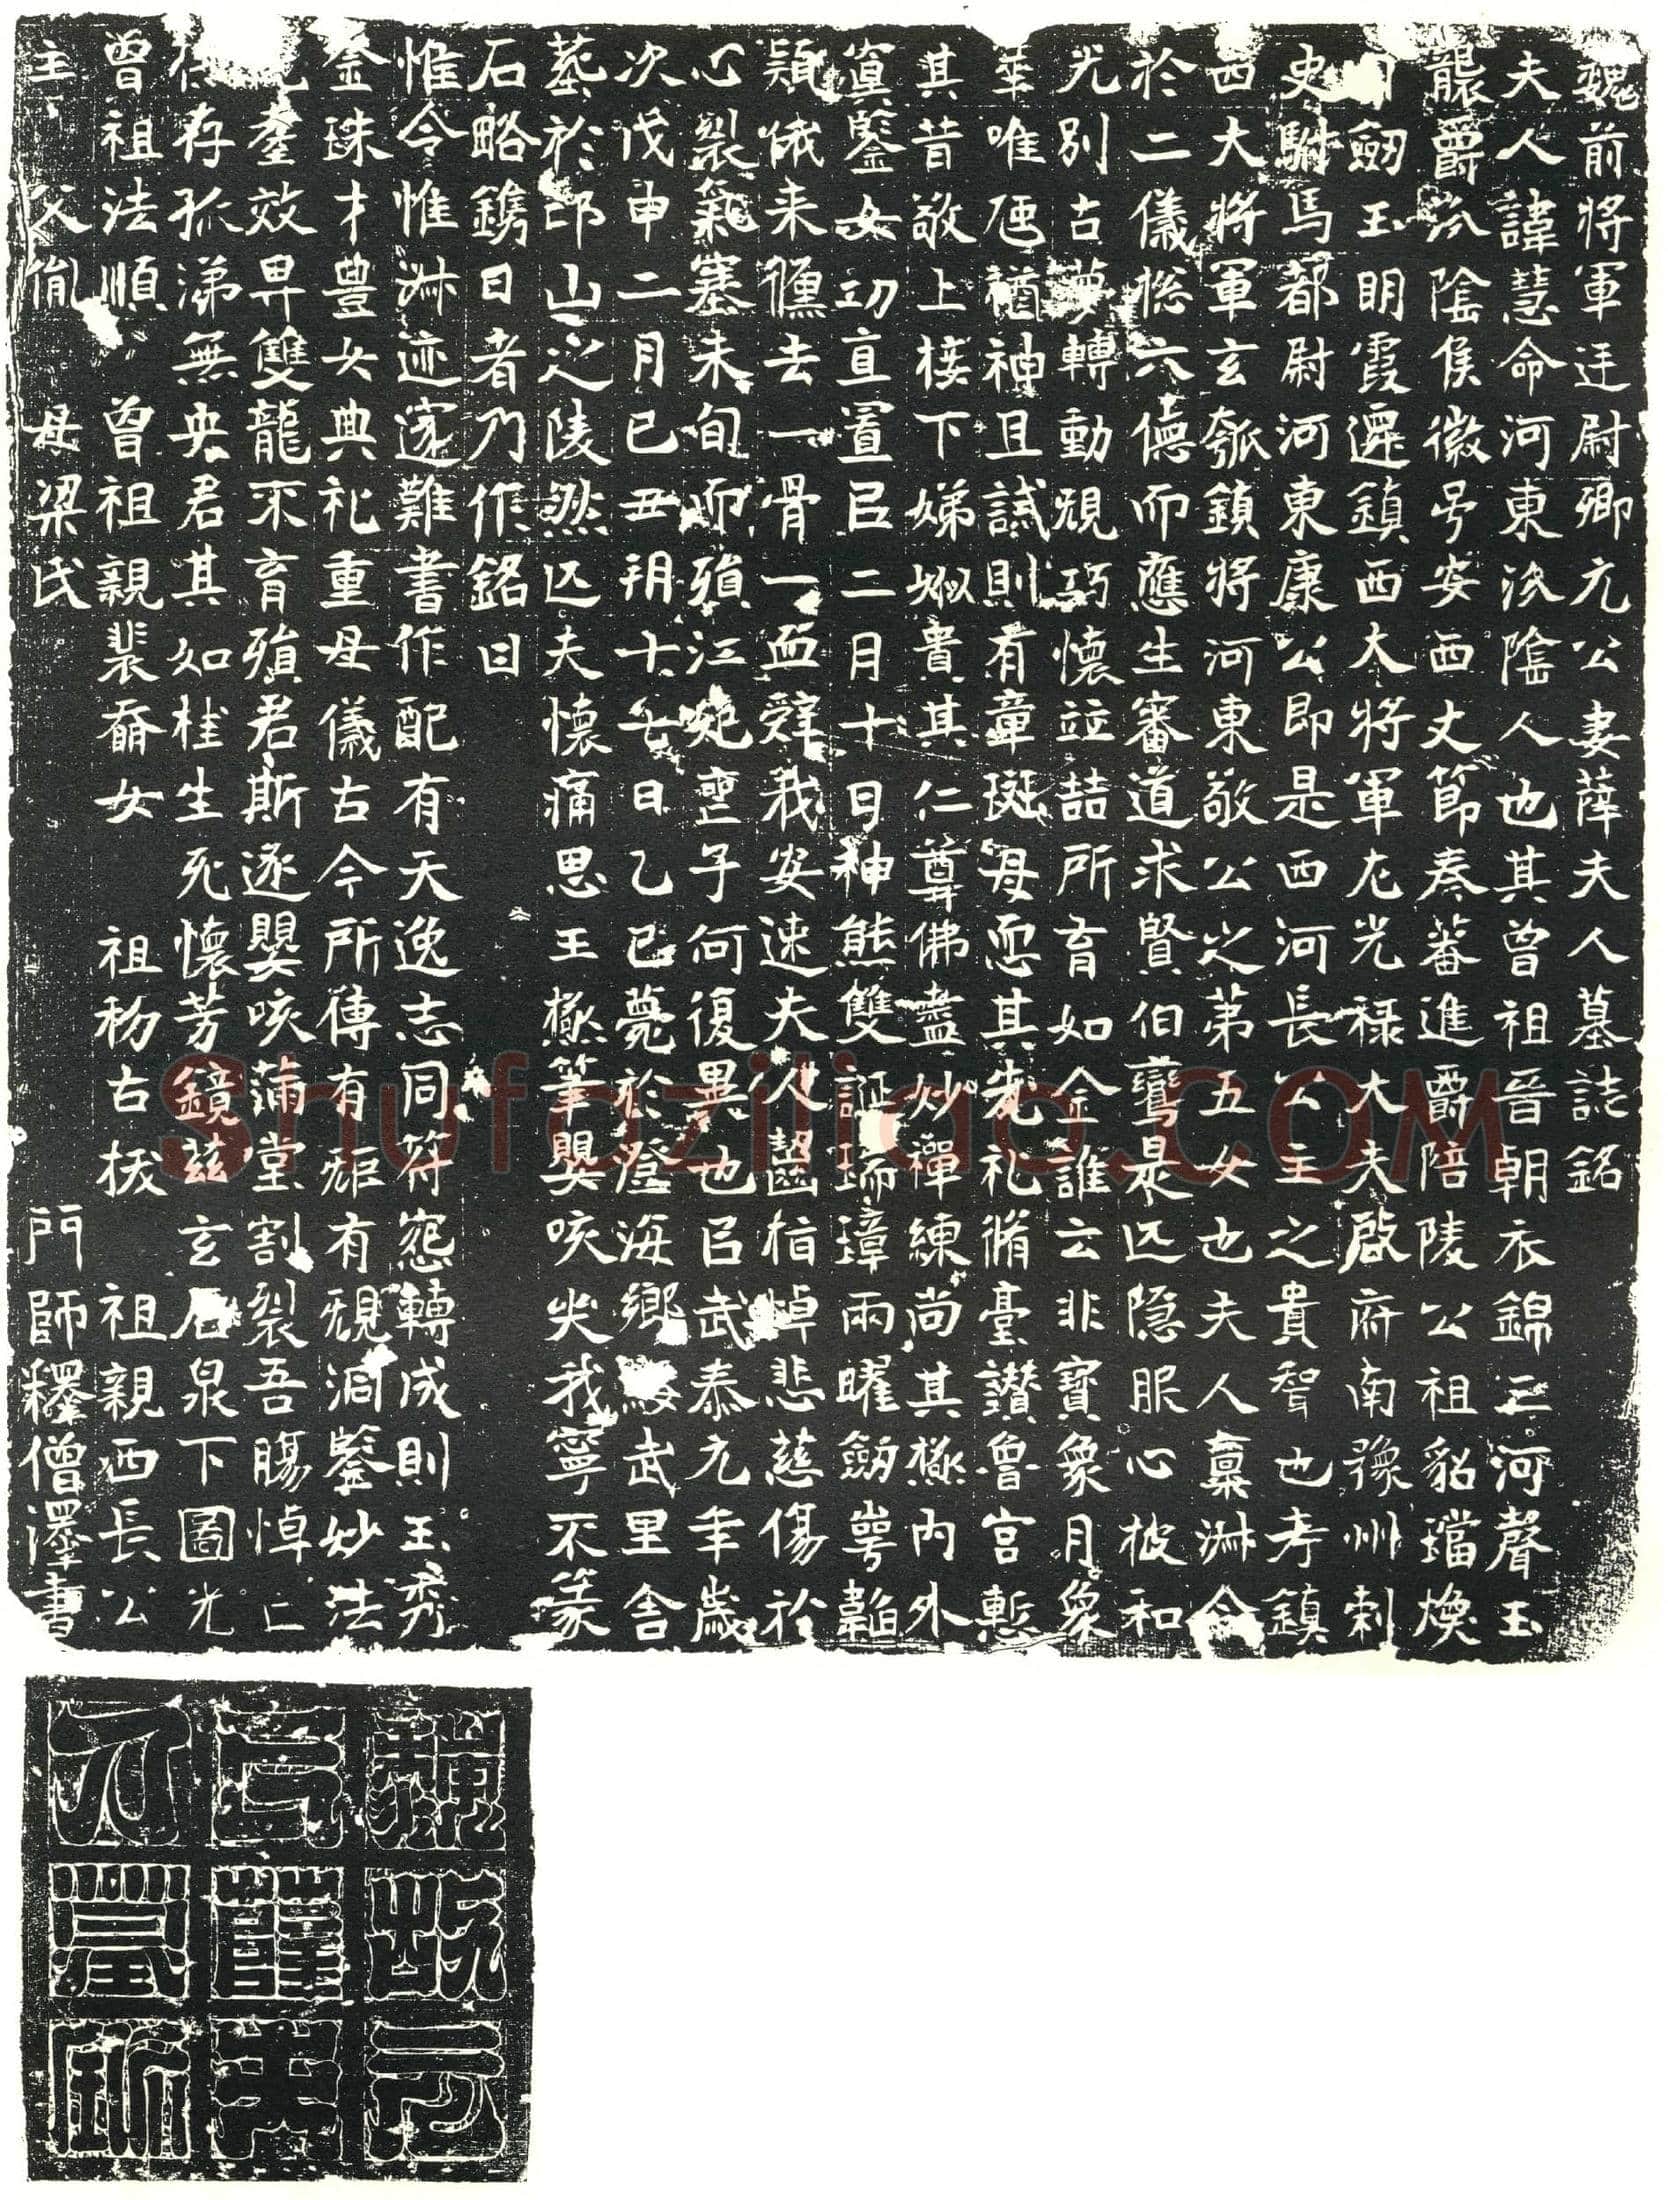 魏前將軍廷尉卿元公妻薛夫人墓誌銘
夫人諱慧命河東汾陰人也其曾祖晉朝衣錦三河聲玉
龍爵汾陰侯徽号安西丈節奏蕃進爵陪陵公祖貂璫煥
日劒玉明霞遷鎮西大將軍左光祿大夫啟府南豫州刺
史駙馬都尉河東康公即是西河長公主之貴聟也考鎮
西大將軍玄瓠鎮將河東敬公之第五女也夫人稟淋令
於二儀捴六德而應生審道求賢伯鸞是匹隱服心披和
光別古夢轉動覞巧懷竝喆所育如金誰云非寶象月象
華唯虺猶神且試則有章斑母恧其先礼脩臺讃魯宫慙
其昔敬上接下娣姒貴其仁尊佛盡妙禪練尚其檢內外
寘鑒女功宣置㠯二月十日神熊雙証瑞璋兩曜劒崿韜
穎俄来儵去一骨一血辭我安速夫人齧指悼悲慈傷於
心裂氣塞未旬而殞江妃亞子何復異也㠯武泰元年歲
次戊申二月己丑朔十七日乙巳薨於澄海鄉武里舍
葬於邙山之陵然匹夫懷痛思王檢筆嬰咳尖我寧不篆
石略鐫日者乃作銘曰
惟令惟淋迹邃難書作配有天逸志同符怨轉成則玉秀
金珠才豊女典礼重母儀古今所傳有炬有覞洞鑒妙法
羍效畀雙龍不育殞君斯逐嬰咳蒲堂割裂吾腸悼亡
存孤涕無央君其如桂生死懷芳鏡玆玄石泉下圖光
曾祖法順 曾祖親裴奣女 祖初古拔 祖親西長公
主 父胤 母梁氏 門師釋僧澤書
魏故元
公薛夫
人墓銘
Shufaziliao.COM